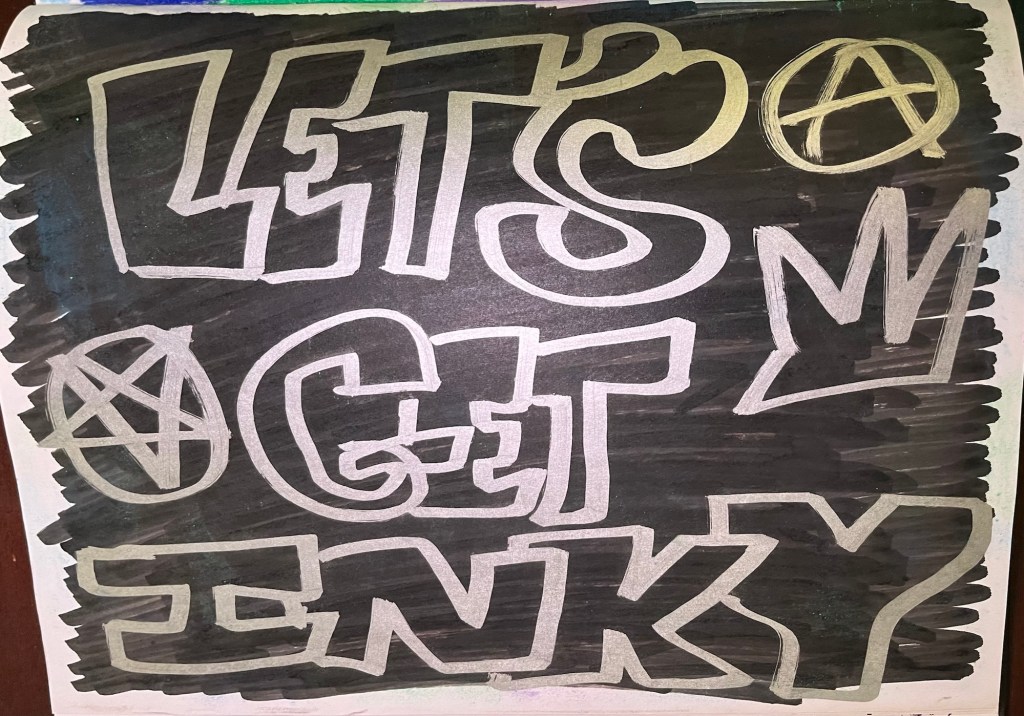 LET'S
GET
INKY